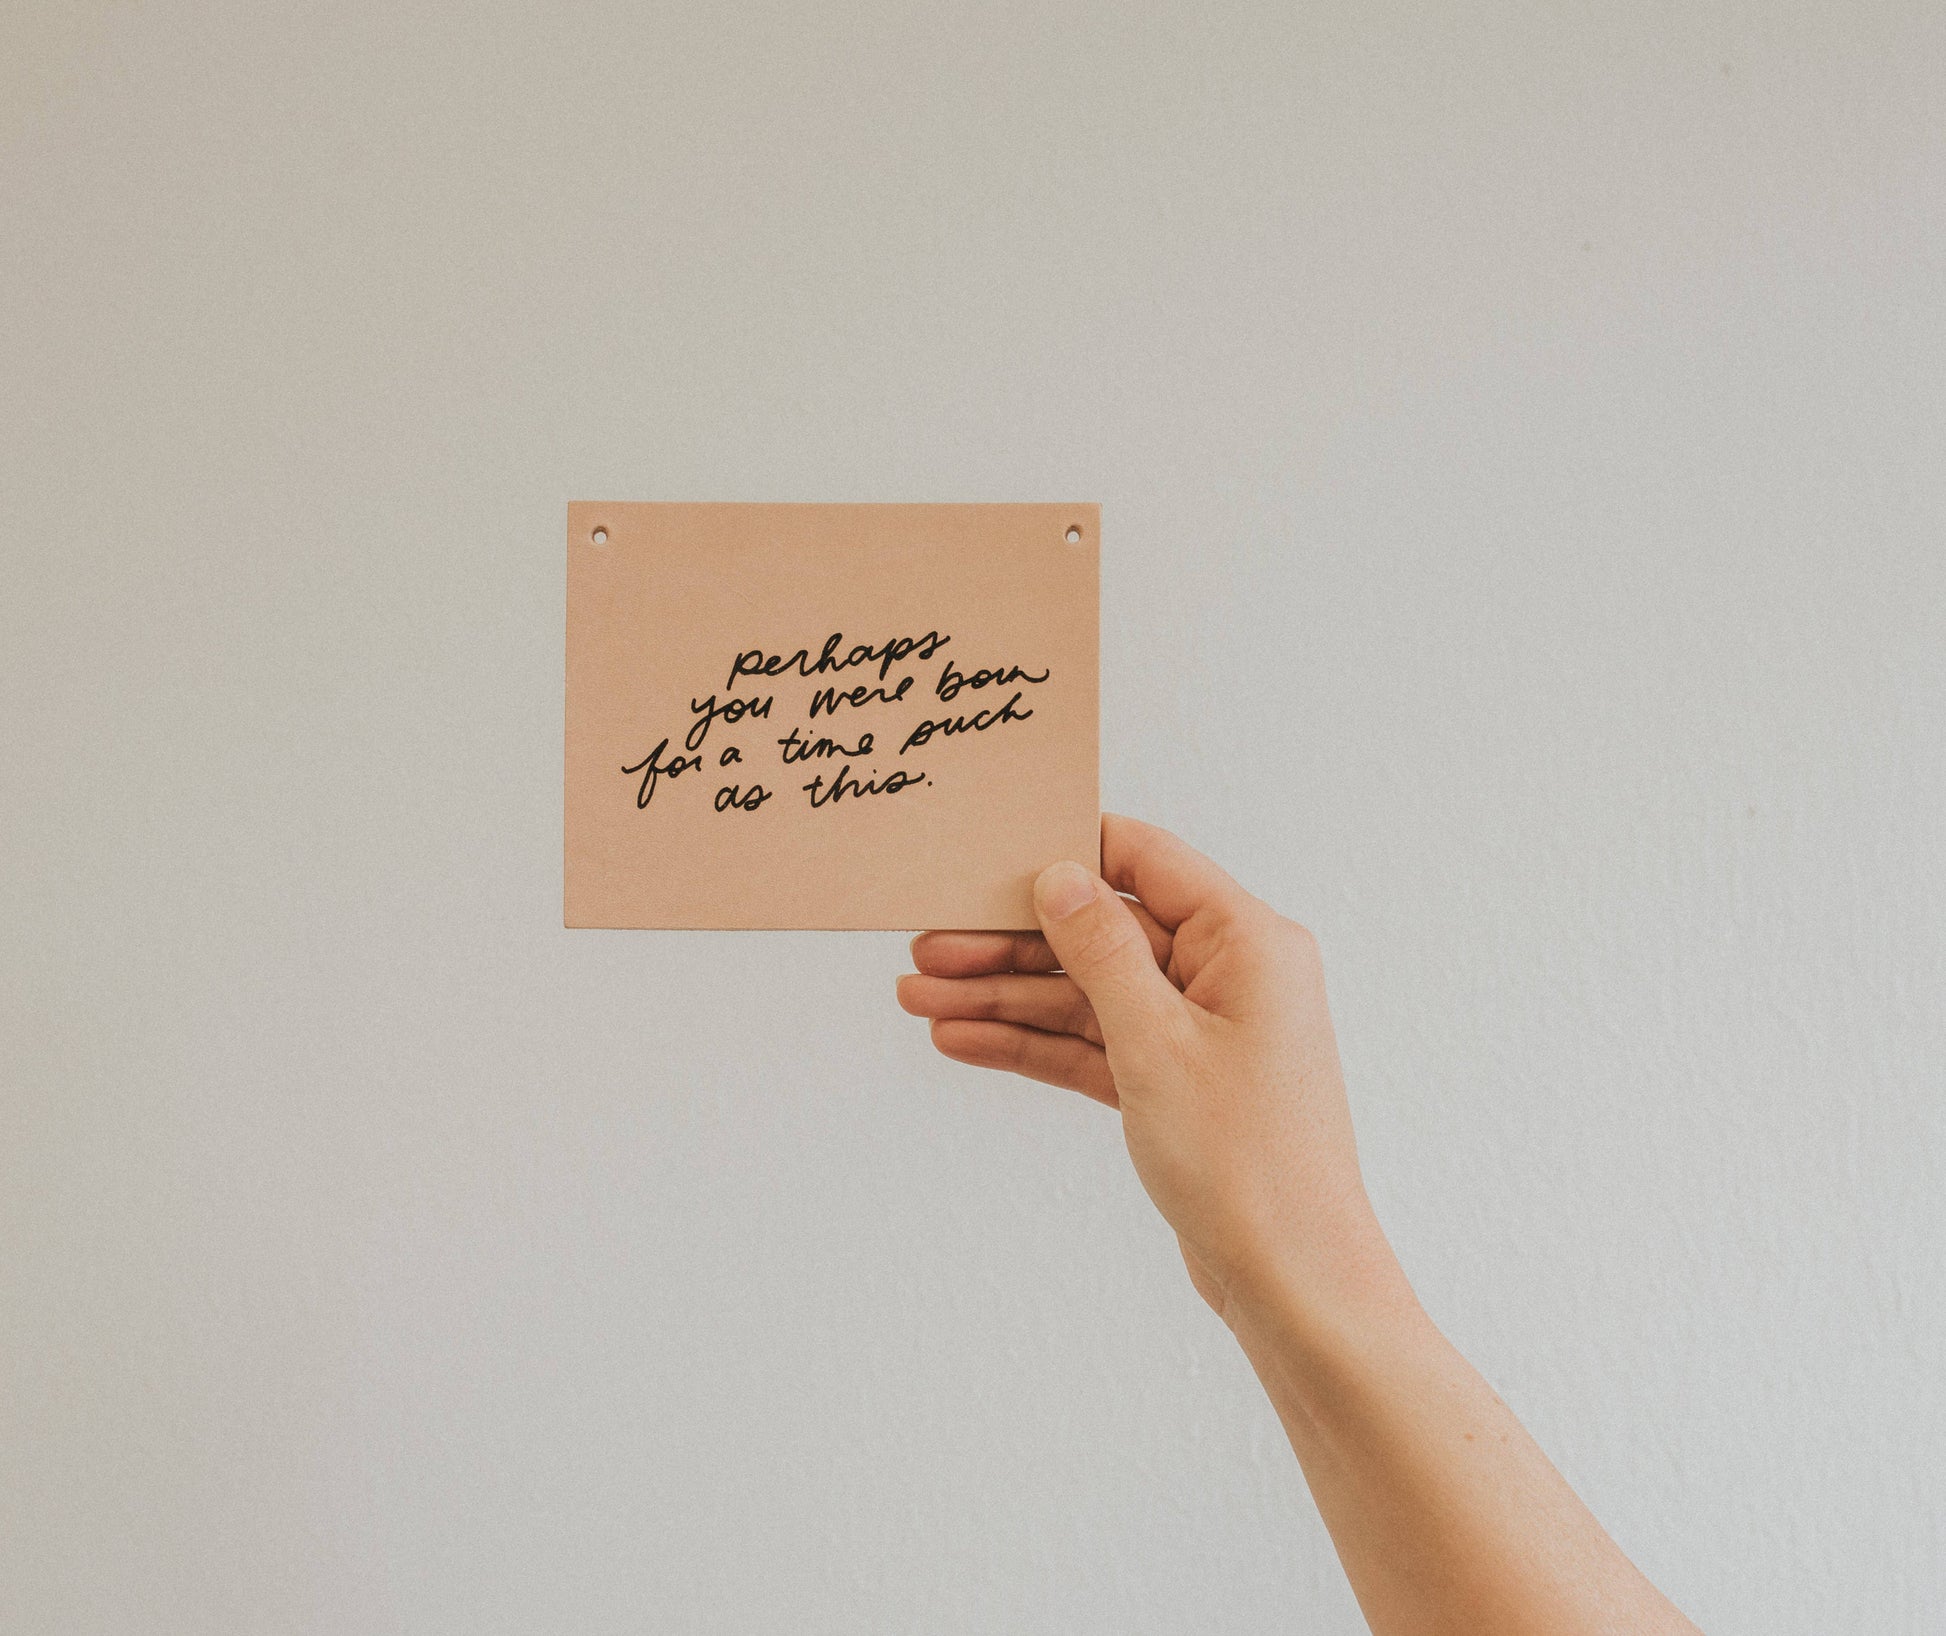 perhaps
you were born
for a time such
as this.